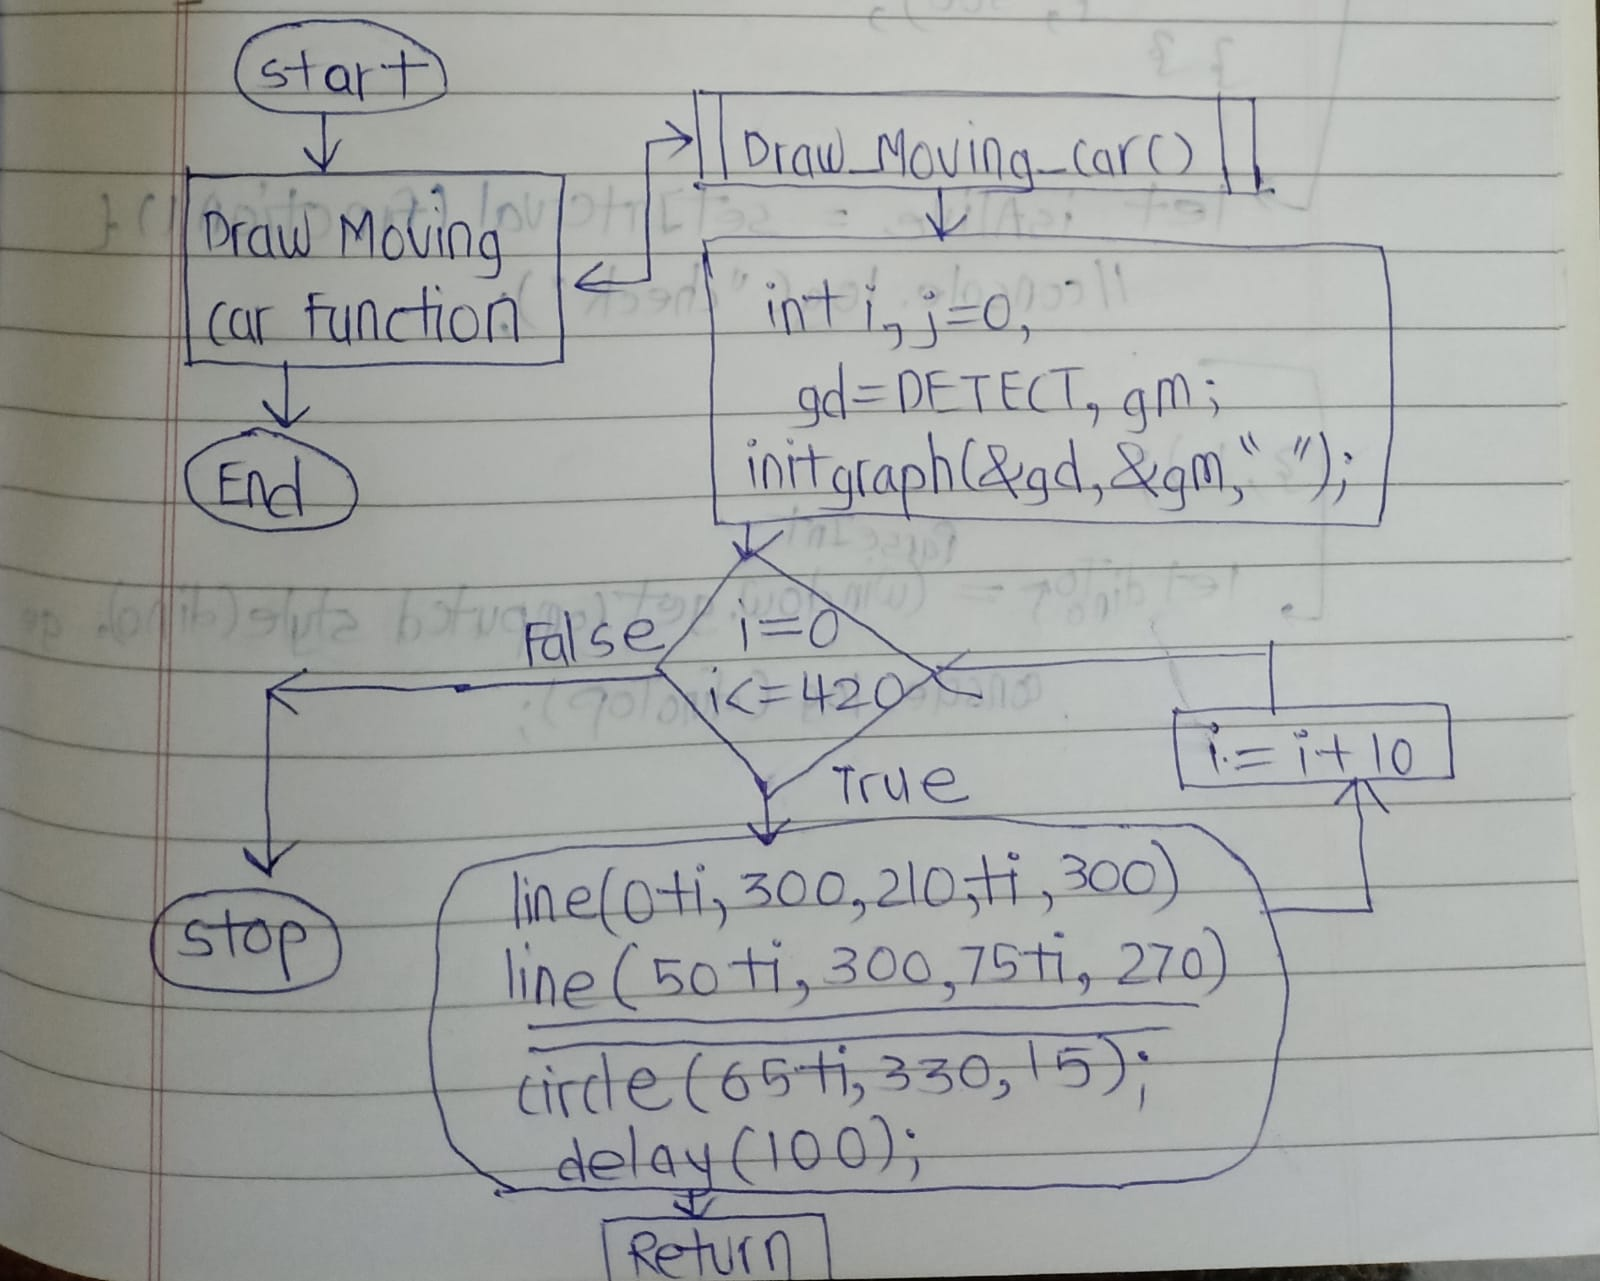 start
Draw Moving
car function
End
Draw_Moving_car()
int i, j=0,
gd=DETECT, gm;
initgraph(&gd, &gm, " ");
i=0
i<=420
False
True
i=i+10
stop
line(0+i, 300, 210,+i, 300)
line(50+i, 300, 75+i, 270)
circle(65+i, 330, 15);
delay(100);
Return